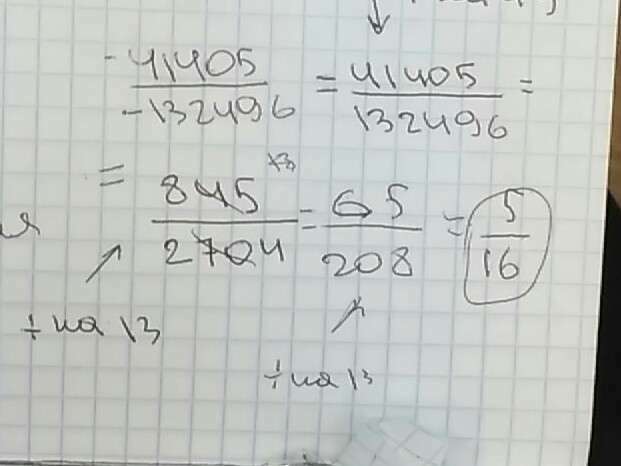 -41405 / -132496 = 41405 / 132496 =
= 845 / 2704 = 65 / 208 = 5 / 16
÷ на 13
÷ на 13